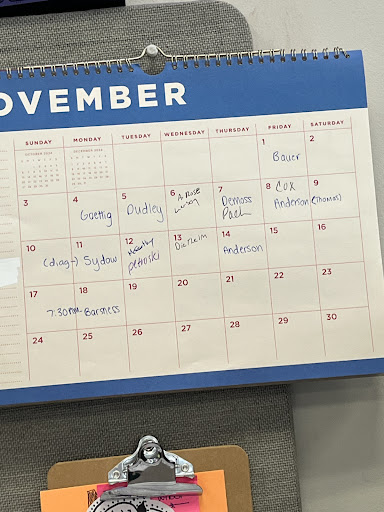 OVEMBER
SUNDAY MONDAY TUESDAY WEDNESDAY THURSDAY FRIDAY SATURDAY
1 2
Bauer
3 4 5 6 7 8 9
Goettig Dudley A. Rose Demoss Cox
Pach Anderson (Thomas)
10 11 12 13 14 15 16
(diag-) Sydow Petroski Dietheim Anderson
17 18 19 20 21 22 23
7:30am Barsness
24 25 26 27 28 29 30